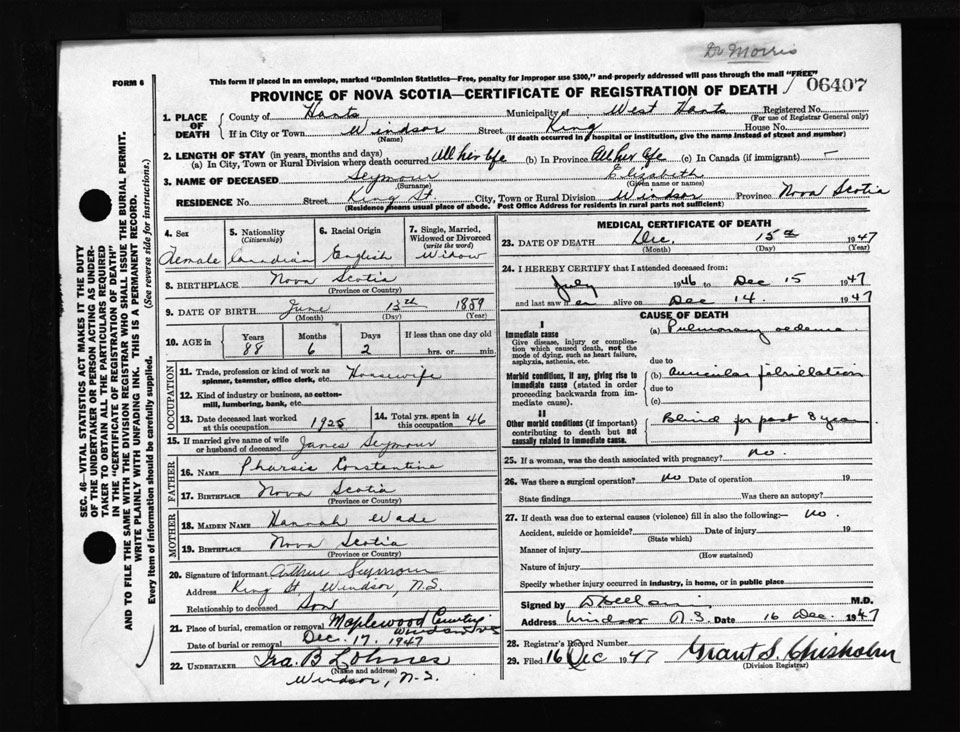 Dr Morris
FORM 6
This form if placed in an envelope, marked "Dominion Statistics—Free, penalty for improper use $300," and properly addressed will pass through the mail "FREE"
06407
PROVINCE OF NOVA SCOTIA—CERTIFICATE OF REGISTRATION OF DEATH
1. PLACE OF DEATH
County of Hants Municipality of West Hants Registered No.
(For use of Registrar General only)
If in City or Town Windsor Street King House No.
(Name) (If death occurred in hospital or institution, give the name instead of street and number)
2. LENGTH OF STAY (in years, months and days)
(a) In City, Town or Rural Division where death occurred All her life (b) In Province All her life (c) In Canada (if immigrant) —
3. NAME OF DECEASED Seymour Elizabeth
(Surname) (Given name or names)
RESIDENCE No. Street King St. City, Town or Rural Division Windsor Province Nova Scotia
(Residence means usual place of abode. Post Office Address for residents in rural parts not sufficient)
4. Sex
Female
5. Nationality
(Citizenship)
Canadian
6. Racial Origin
English
7. Single, Married, Widowed or Divorced
(write the word)
Widow
8. BIRTHPLACE Nova Scotia
(Province or Country)
9. DATE OF BIRTH June 13th 1859
(Month) (Day) (Year)
10. AGE in
Years Months Days If less than one day old
88 6 2 hrs. or min.
OCCUPATION
11. Trade, profession or kind of work as
spinner, teamster, office clerk, etc. Housewife
12. Kind of industry or business, as cotton-
mill, lumbering, bank, etc.
13. Date deceased last worked
at this occupation 1925
14. Total yrs. spent in
this occupation 46
15. If married give name of wife
or husband of deceased James Seymour
FATHER
16. NAME Constantine
17. BIRTHPLACE Nova Scotia
(Province or Country)
MOTHER
18. MAIDEN NAME Hannah Wade
19. BIRTHPLACE Nova Scotia
(Province or Country)
20. Signature of informant Arthur Seymour
Address King St, Windsor, N.S.
Relationship to deceased Son
21. Place of burial, cremation or removal Maplewood Windsor NS
Date of burial or removal Dec. 17, 1947
22. UNDERTAKER Ira. B Lohnes
(Name and address)
Windsor, N.S.
MEDICAL CERTIFICATE OF DEATH
23. DATE OF DEATH Dec. 15th 1947
(Month) (Day) (Year)
24. I HEREBY CERTIFY that I attended deceased from:
July 1946 to Dec 15 1947
and last saw h er alive on Dec 14. 1947
CAUSE OF DEATH
I
Immediate cause
Give disease, injury or complica-
tion which caused death, not the
mode of dying, such as heart failure,
asphyxia, asthenia, etc.
(a) Pulmonary oedema
due to
Morbid conditions, if any, giving rise to
immediate cause (stated in order
proceeding backwards from im-
mediate cause).
(b) auricular fibrillation
due to
(c)
II
Other morbid conditions (if important)
contributing to death but not
causally related to immediate cause.
Blind for past 8 years
25. If a woman, was the death associated with pregnancy? no.
26. Was there a surgical operation? no Date of operation 19
State findings Was there an autopsy?
27. If death was due to external causes (violence) fill in also the following:— no.
Accident, suicide or homicide? Date of injury 19
(State which)
Manner of injury
(How sustained)
Nature of injury
Specify whether injury occurred in industry, in home, or in public place
Signed by M.D.
Address Windsor N.S. 16 Dec. 1947
28. Registrar's Record Number
29. Filed 16 Dec 1947 Grant S. Chisholm
(Division Registrar)
SEC. 46—VITAL STATISTICS ACT MAKES IT THE DUTY
OF THE UNDERTAKER OR PERSON ACTING AS UNDER-
TAKER TO OBTAIN ALL THE PARTICULARS REQUIRED
IN THE "CERTIFICATE OF REGISTRATION OF DEATH"
AND TO FILE THE SAME WITH THE DIVISION REGISTRAR WHO SHALL ISSUE THE BURIAL PERMIT.
WRITE PLAINLY WITH UNFADING INK. THIS IS A PERMANENT RECORD.
Every item of information should be carefully supplied. (See reverse side for instructions.)